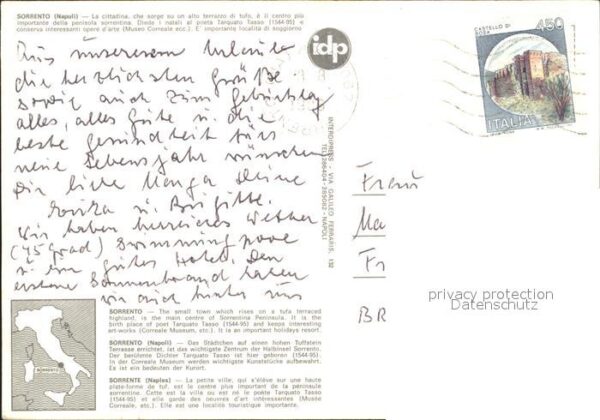 SORRENTO (Napoli) — La cittadina, che sorge su un alto terrazzo di tufo, è il centro più
importante della penisola sorrentina. Diede i natali al poeta Tarquato Tasso (1544-95) e
conserva interessanti opere d'arte (Museo Correale ecc.). E' importante località di soggiorno
idp
CASTELLO DI
450
ITALIA
Aus unserem Urlaub
die herzlichsten Grüße
sowie auch zum Geburtstag
alles, alles Gute u. die
beste Gesundheit fürs
neue Lebensjahr wünschen
Dir liebe Deine
u. Brigitte.
Wir haben herrliches Wetter
(45 Grad) Swimming pool
u. ein gutes Hotel. Den
ersten Sonnenbrand haben
wir auch hinter uns
INTERDIPRESS - VIA GALILEO FERRARIS, 132
NAPOLI
Frau
Ma
Fr
BR
privacy protection
Datenschutz
SORRENTO
SORRENTO — The small town which rises on a tufa terraced
highland, is the main centre of Sorrentina Peninsula. It is the
birth place of poet Tarquato Tasso (1544-95) and keeps interesting
art-works (Correale Museum, etc.). It is an important holidays resort.
SORRENTO (Napoli) — Das Städtchen auf einen hohen Tuffstein
Terrasse errichtet, ist das wichtigste Zentrum der Halbinsel Sorrento.
Der berühmte Dichter Tarquato Tasso ist hier geboren (1544-95).
In der Correale Museum werden wichtige Kunststücke aufbewahrt.
Es ist ein bedeuten der Kurort.
SORRENTE (Naples) — La petite ville, qui s'élève sur une haute
plate-forme de tuf, est le centre plus important de la péninsule
sorrentine. Cette est la ville ou est né le poète Tarquato Tasso
(1544-95) et elle garda des oeuvres d'art intéressantes (Musée
Correale, etc.). Elle est une localité touristique importante.